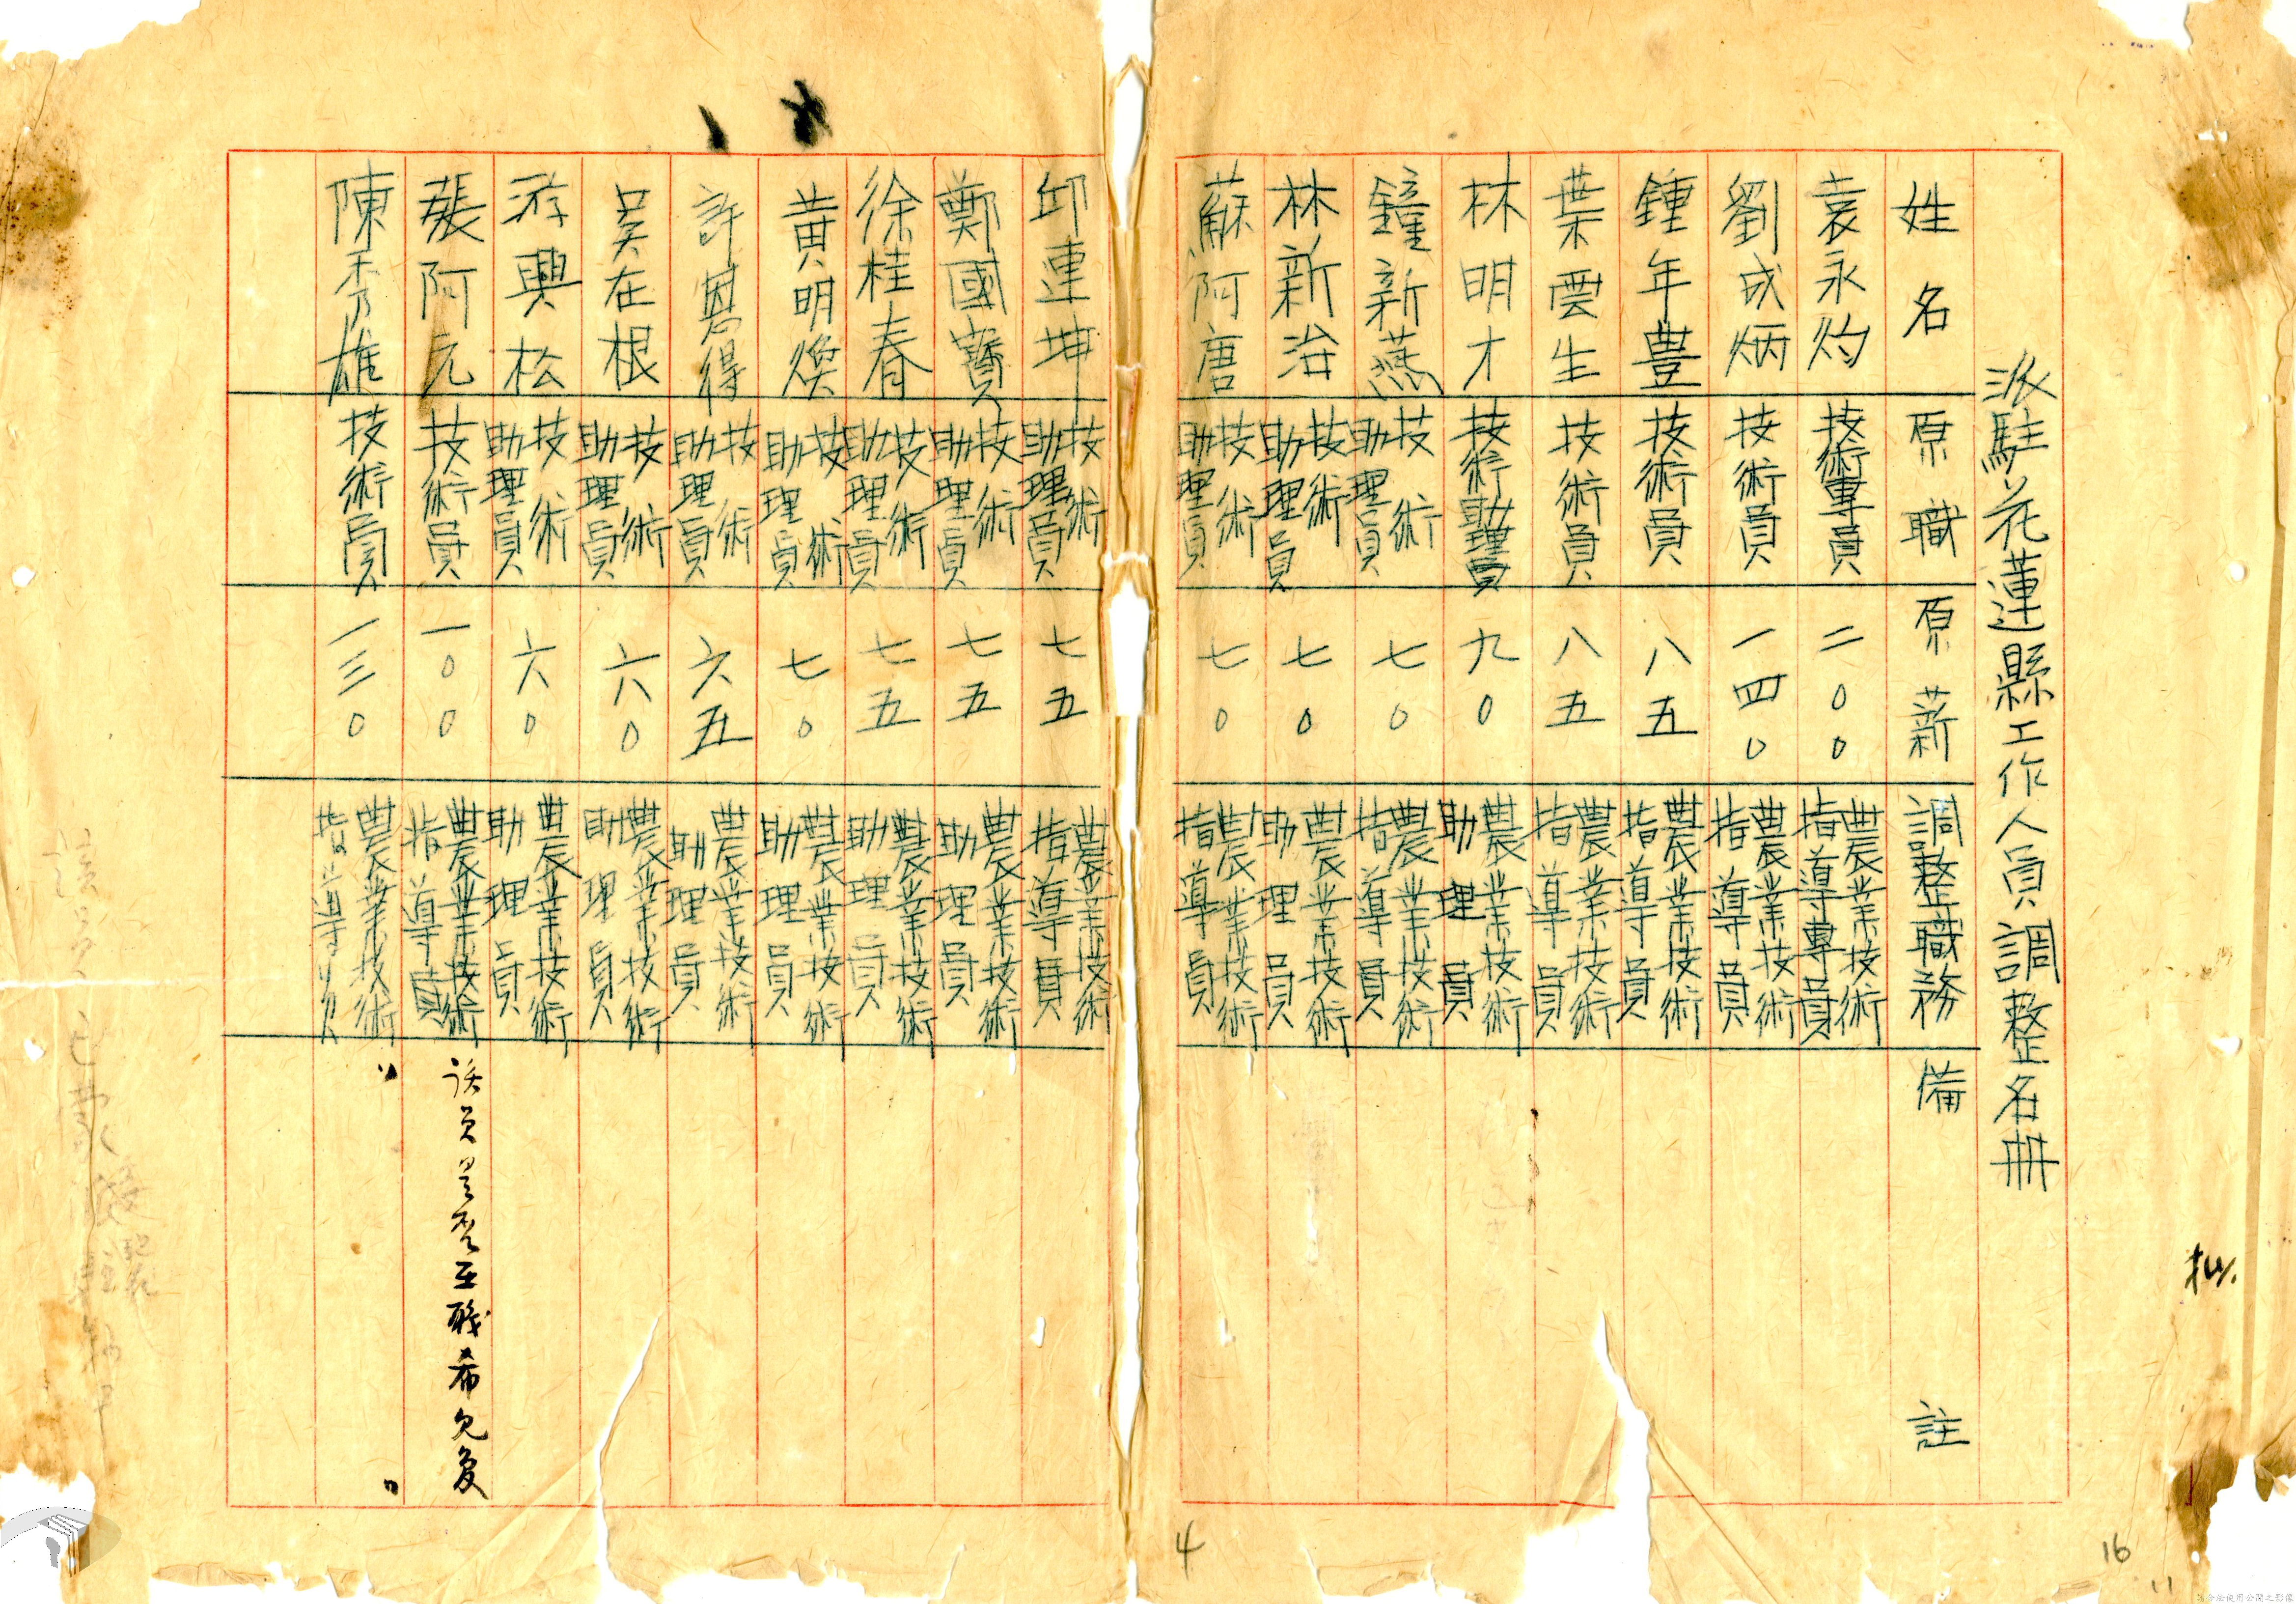 派駐花蓮縣工作人員調整名冊
姓名 原職 原薪 調整職務 備註
袁永灼 技術專員 二〇〇 農業技術指導專員
劉成炳 技術員 一四〇 農業技術指導員
鍾年豊 技術員 八五 農業技術指導員
葉雲生 技術員 八五 農業技術指導員
林明才 技術助理員 九〇 農業技術助理員
鐘新燕 技術助理員 七〇 農業技術指導員
林新治 技術助理員 七〇 農業技術助理員
蘇阿唐 技術助理員 七〇 農業技術指導員
邱連坤 技術助理員 七五 農業技術指導員
鄭國寶 技術助理員 七五 農業技術助理員
徐桂春 技術助理員 七五 農業技術助理員
黃明煥 技術助理員 七〇 農業技術助理員
許恩得 技術助理員 六五 農業技術助理員
吳在根 技術助理員 六〇 農業技術助理員
游興松 技術助理員 六〇 農業技術助理員
張阿元 技術員 一〇〇 農業技術指導員 該員是否在職希見復
陳秀雄 技術員 一三〇 農業技術指導員 〃 〃
4
16
11